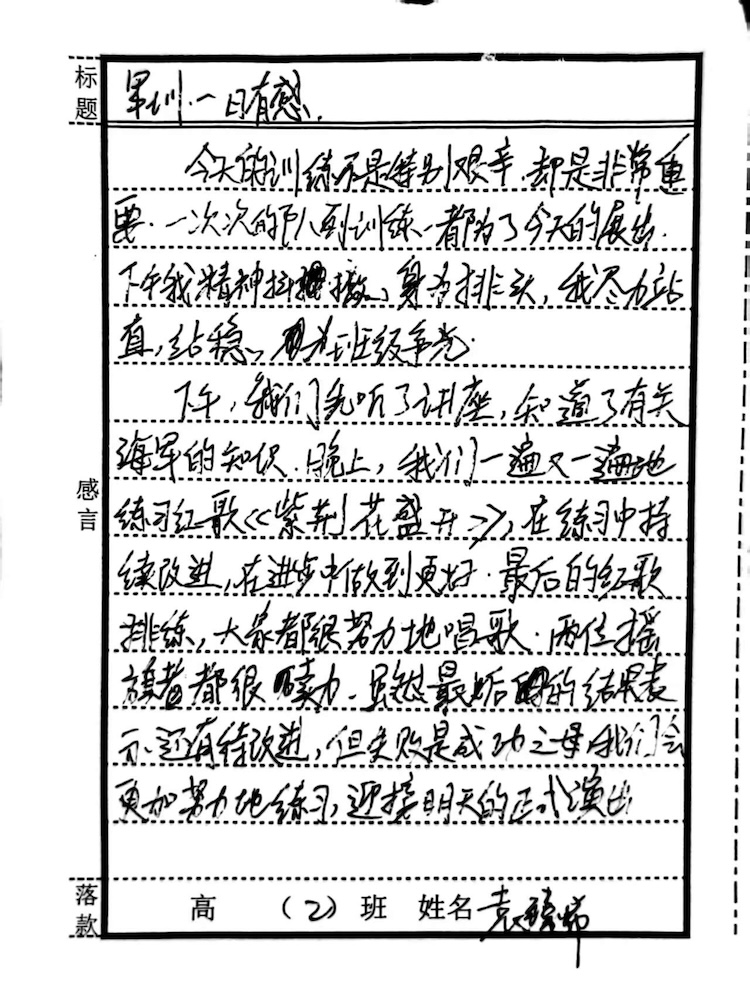 标题
军训一日有感.
今天的训练不是特别艰辛,却是非常重
要.一次次的队列训练都为了今天的展出.
下午我精神抖擞,身为排头,我尽力站
直,站稳,为班级争光.
下午,我们先听了讲座,知道了有关
海军的知识.晚上,我们一遍又一遍地
练习红歌《紫荆花盛开》,在练习中持
续改进,在进步中做到更好.最后的红歌
排练,大家都很努力地唱歌.两位摇
旗者都很卖力.虽然最后的结果表
示还有待改进,但失败是成功之母,我们会
更加努力地练习,迎接明天的正式演出
感言
落款
高 (2) 班 姓名 袁